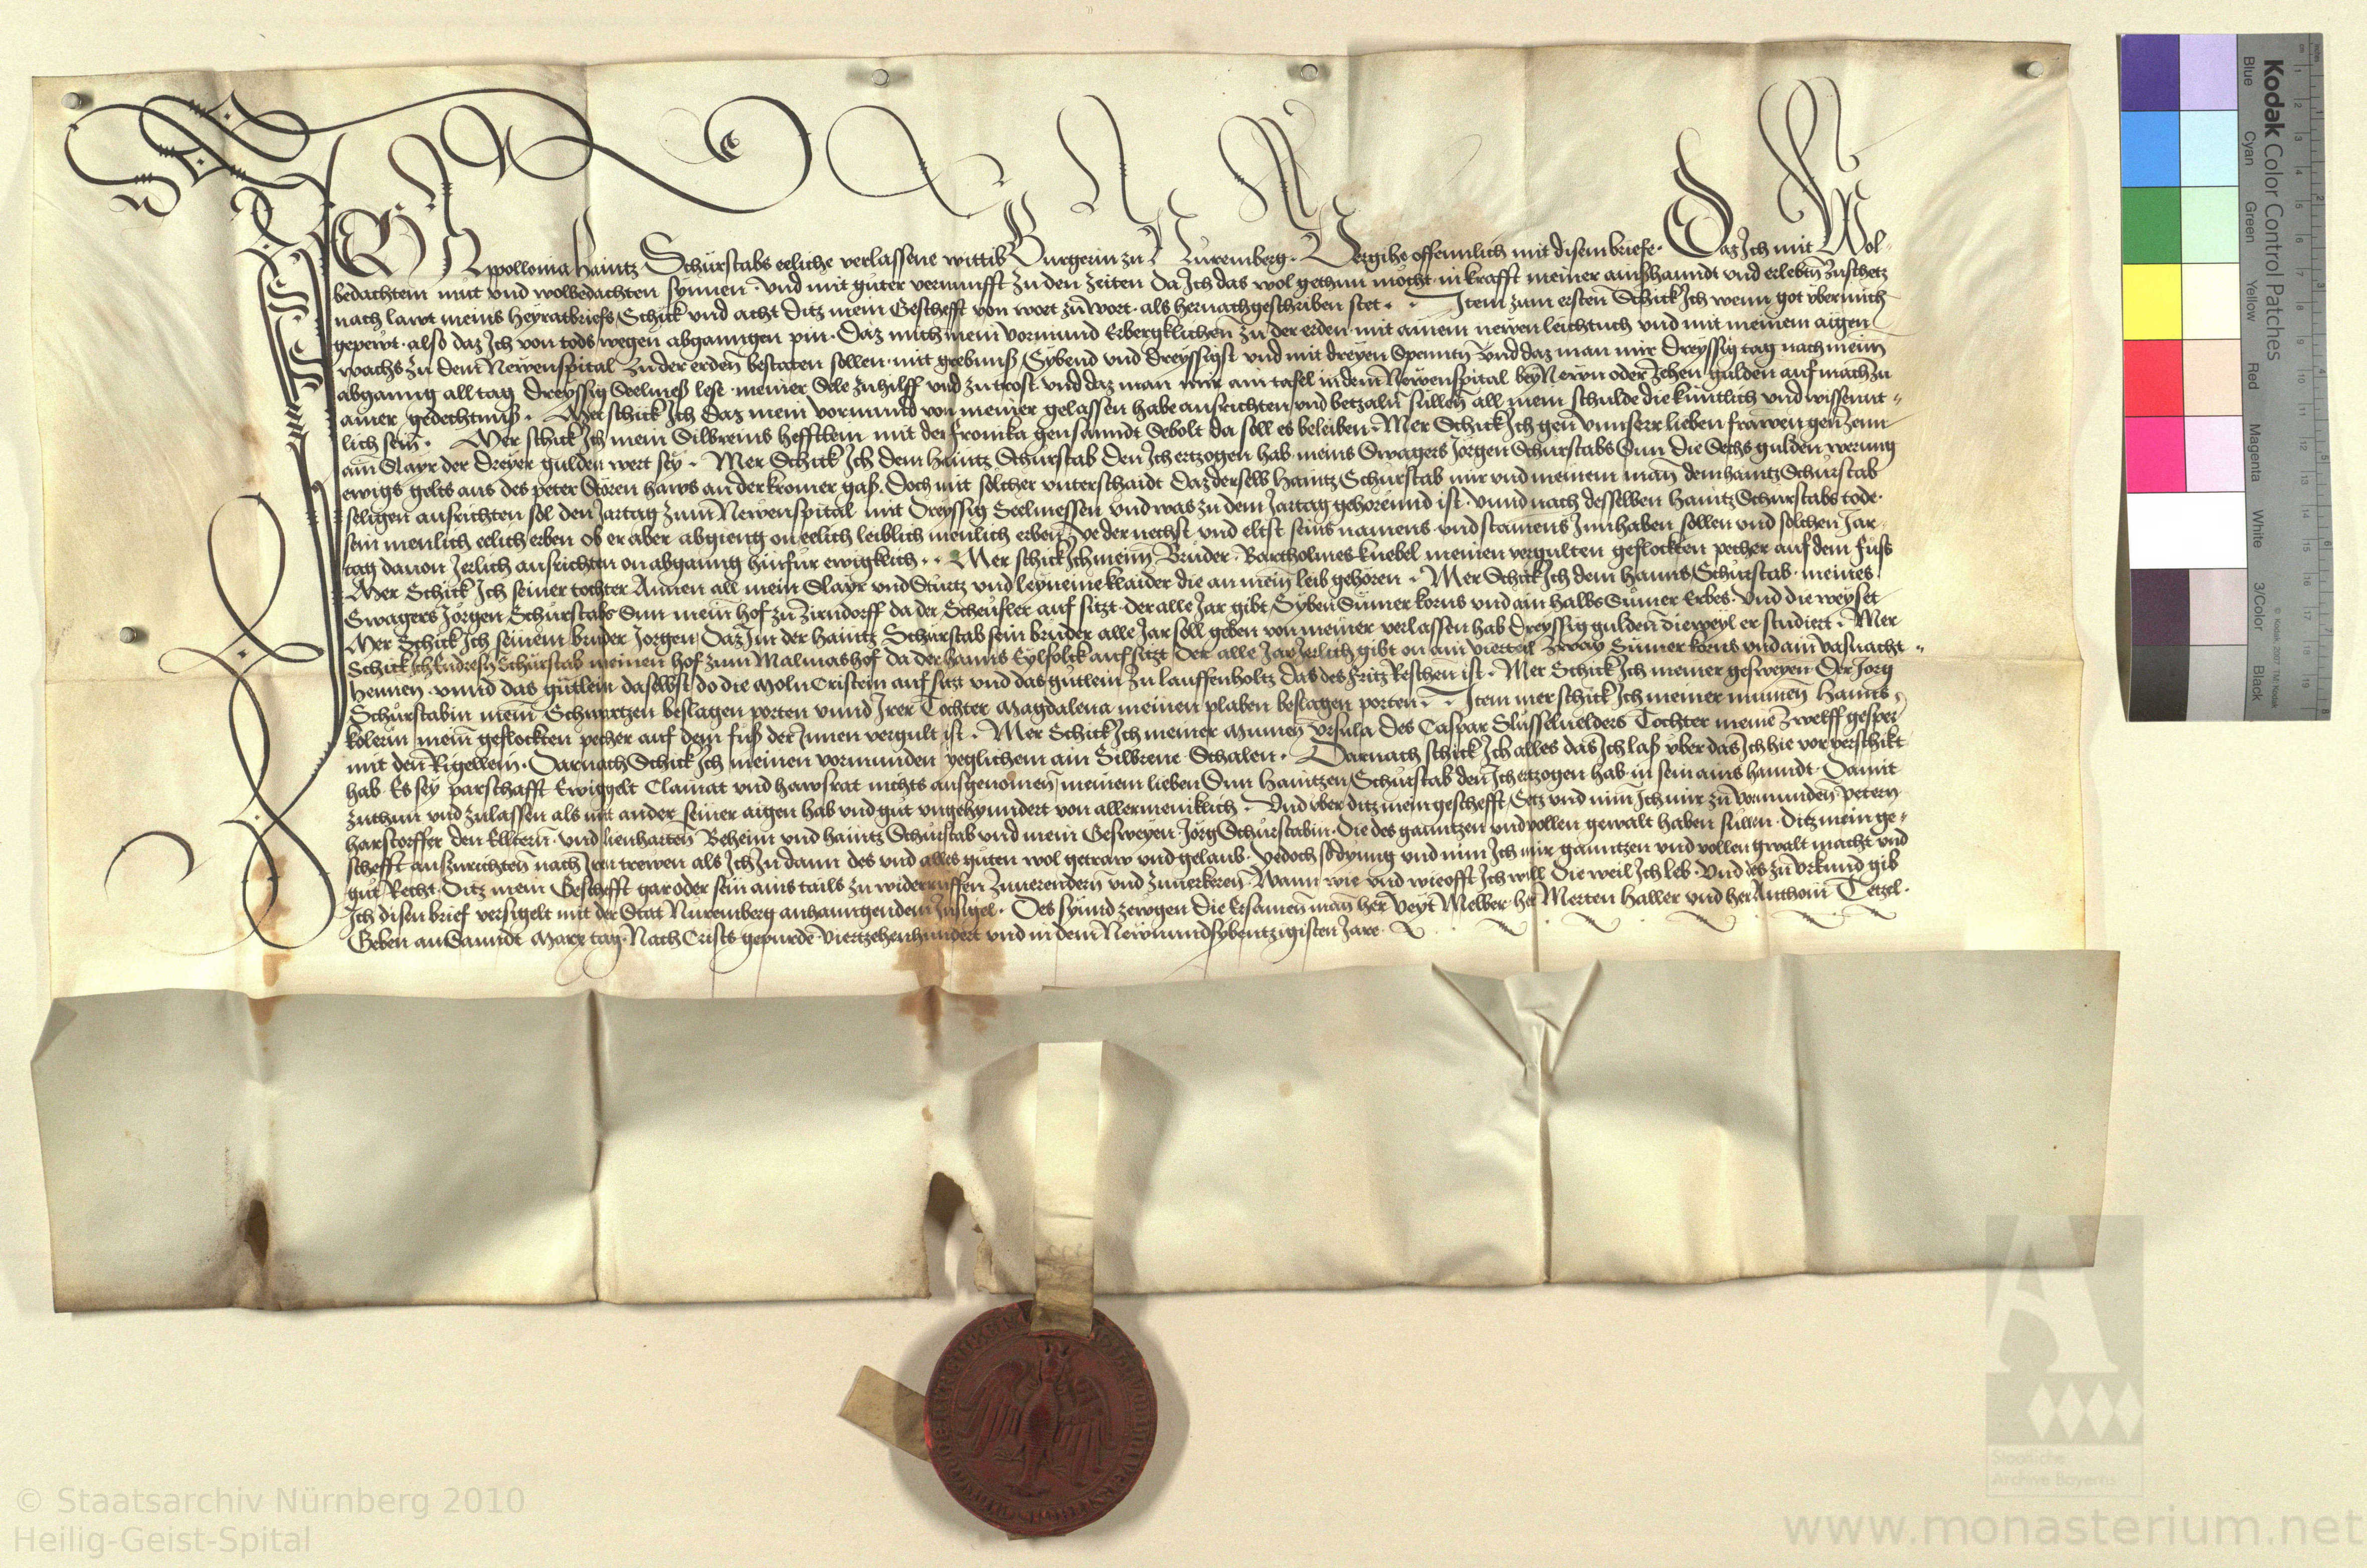 ICh Appollonia Haintz Schürstabs eeliche verlassene wittib Burgerin zu Nüremberg. Vergihe offennlich mit disem briefe. Daz Ich mit Wol-
bedachtem mut vnd wolbedachten synnen vnd mit güter vernunfft zu den zeiten Da Ich das wol gethun mocht in krafft meiner
nach lawt meins heyratbriefs Schick vnd acht Ditz mein Geschefft von wort zü wort als hernachgeschriben stet. Item zum ersten Schick Ich wenn got vber mich
gepewt also daz Ich von tods wegen abganngen pin. Daz mich mein vormund Erbergklichen zu der erden mit ainem newen leichtuch vnd mit meinem aigen
wachs zu dem Newenspital zu der erden bestaten sollen mit grebnuß Sybend vnd Dreyssigst vnd mit dreyen vnd daz man mir Dreyssig tag nach meinem
abganng all tag Dreyssig Seelmeß lese meiner Sele zu hilff vnd zu trost vnd daz man mir ain tafel in dem Newenspital bey Newn oder zehen gulden auf mach zu
ainer gedechtnuß. Mer schick Ich daz mein vormund von meiner gelassen habe ausrichten vnd betzaln süllen all mein schulde die küntlich vnd wissennt-
lich sein. Mer schick Ich mein Silbreins hefftlein mit der fronika gen sanndt Sebolt da soll es beleiben. Mer Schick Ich gen vnnserr lieben frawen
ain Slayr der Dreyer gulden wert sey. Mer Schick Ich dem Haintz Schürstab den Ich ertzogen hab meins Swagers Jörgen Schürstabs Sun die Sechs gulden werung
ewigs gelts aus des peter Stören haws an der kromer gaß. Doch mit solcher vnterschaidt Daz derselb Haintz Schürstab mir vnd meinem man dem haintz Schürstab
seligen ausrichten sol den Jartag zum Newenspital mit Dreyssig Seelmessen vnd was zu dem Jartag gehorennd ist vnnd nach desselben Haintz Schürstabs tode
sein menlich eelich erben ob er aber abgieng on eelich leiblich menlich erben ye der nechst vnd eltst seins namens vnd stamens Innhaben sollen vnd solchen Jar-
tag dauon Jerlich ausrichten on abganng hinfür ewigklich. Mer schick Ich meim Bruder Bartholmes knebel meinen vergulten geflockten pecher auf dem füß
Mer Schick Ich seiner tochter Annen all mein Slayr vnd Stürtz vnd leyneine klaider die an mein leib gehoren. Mer Schick Ich dem Hanns Schürstab meines
Swagers Jörgen Schürstabs Sun mein hof zu Zirndorff da der Scheüfler auf sitzt der alle Jar gibt Syben Sümer korns vnd ain halbs Sümer Erbes vnd die weyset
Mer Schick Ich seinem bruder Jorgen Daz Im der Haintz Schürstab sein bruder alle Jar soll geben von meiner verlassen hab Dreyssig gulden die weyl er studiert. Mer
Schick Ich Endresn Schürstab meinen hof zum Malmashof da der Hanns auf sitzt Der alle Jar Jerlich gibt on ain vierteil zway Sümer korns vnd ain vasnacht-
hennen vnnd das gütlein daselbst do die Cristein auf sitzt vnd das gütlein zu lauffenholtz das des Fritz Reschen ist. Mer Schick Ich meiner gesweyen Der Jorg
Schürstabin mein Schwartzen beslagen porten vnnd Irer Tochter Magdalena meinen plaben beslagen porten. Item mer schick Ich meiner mumen Hanns
kolerin mein geflockten pecher auf dem fuß der Innen vergult ist. Mer Schick Ich meiner Mumen vrsula des Caspar Slüsseluelders Tochter meine zwelff gesper
mit den Rigellein. Darnach Schick Ich meinen vormunden yeglichem ain Silbrene Schalen. Darnach schick Ich alles das Ich laß vber das Ich hie vor verschikt
hab Es sey parschafft Ewiggelt Clainat vnd hawsrat nichts ausgenomen meinem lieben Sun Haintzen Schürstab den Ich ertzogen hab in sein ains hanndt Damit
zuthun vnd zulassen als mit ander seiner aigen hab vnd gut vngehyndert von allermenicklich. Vnd vber ditz mein geschefft Setz vnd nim Ich mir zu vormunden Petern
harstorffer den Elltern vnd lienharten Beheim vnd haintz Schürstab vnd mein Gesweyen Jorg Schürstabin. Die des ganntzen vnd vollen gewalt haben süllen Ditz mein ge-
schefft außzurichten nach Iren trewen als Ich zu dann des vnd alles guten wol getraw vnd gelaub. Yedoch so dyng vnd nim Ich mir ganntzen vnd vollen gwalt macht vnd
gut Recht Ditz mein Geschefft gar oder sein ains tails zu widerruffen zuuerendern vnd zuuerkeren. Wann wie vnd wie offt Ich will Die weil Ich leb. Vnd des zu vrkund gib
Ich disen brief versigelt mit der Stat Nüremberg anhanngendem Insigel. Des synnd zewgen die Ersamen man her Veyt Melber her Merten Haller vnd her Anthoni Tetzel.
Geben an Sanndt Marx tag Nach Crists gepurde viertzehenhundert vnd in dem Newnundsybentzigisten Jare.
Kodak Color Control Patches
Blue Cyan Green Yellow Red Magenta White 3/Color Black
© Staatsarchiv Nürnberg 2010
Heilig-Geist-Spital
Staatliche
Archive Bayerns
www.monasterium.net